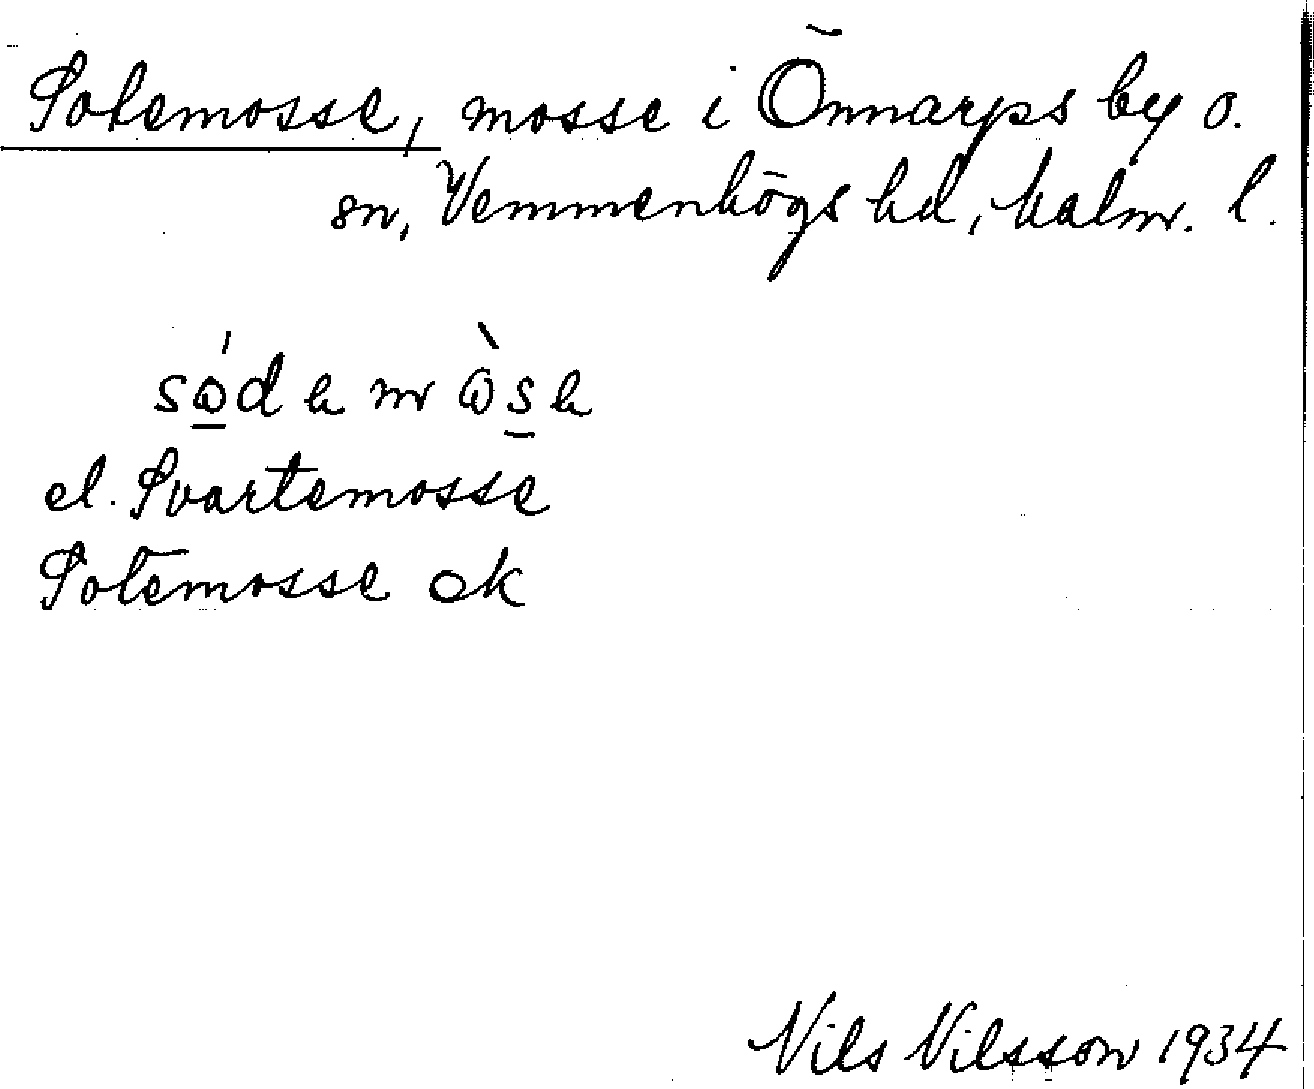 Sotemosse, mosse i Önnarps by o.
sn, Vemmenhögs hd, Malm. l.
el. Svartemosse
Sotemosse ok
Nils Nilsson 1934